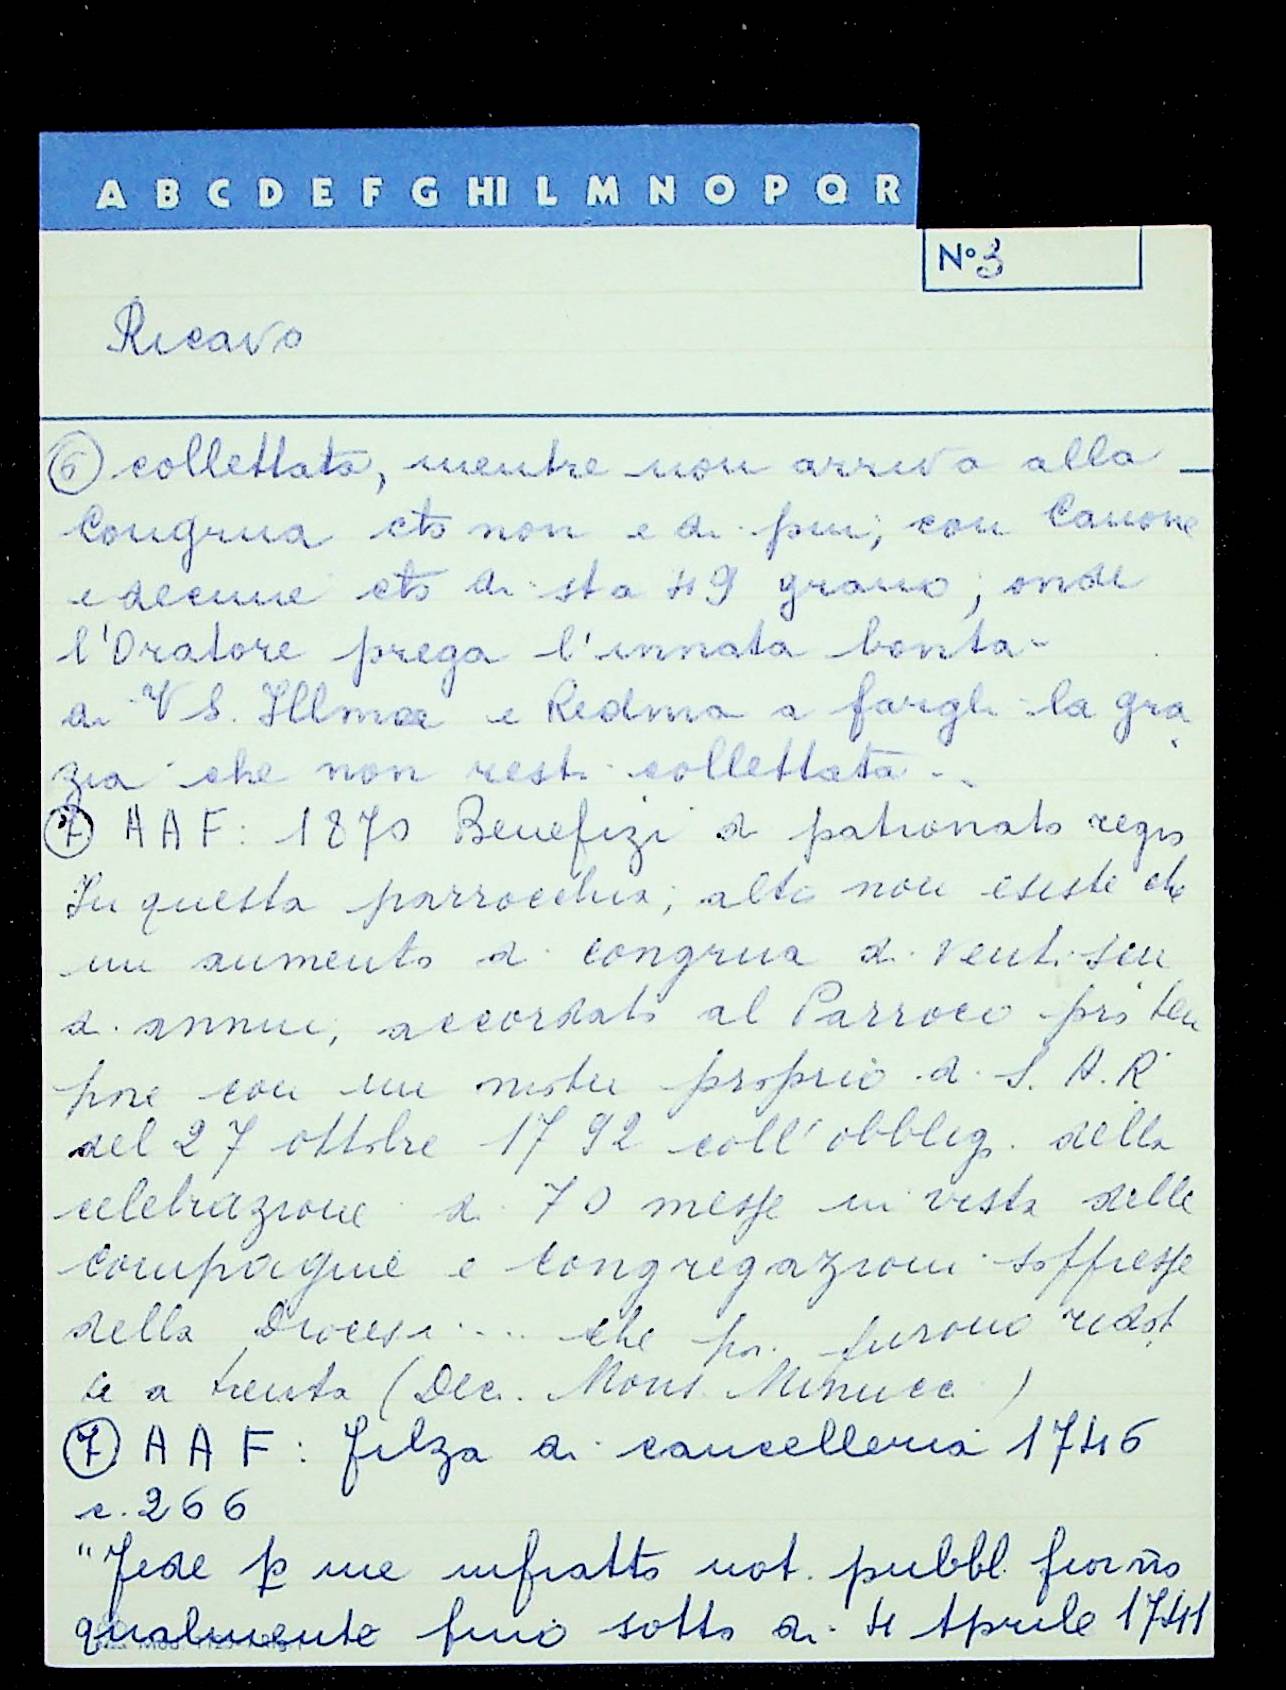 A B C D E F G HI L M N O P Q R
N° 3
Ricavo
6 collettata, mentre non arriva alla
Congrua cto non e di piu, con Canone
e decime cto di sta 49 grano, onde
l'Oratore prega l'innata bonta
di V S. Illma e Redma a fargli la gra
zia che non resti collettata.
7 A A F: 1870 Benefizi di patronato regio
In questa parrocchia, altro non esiste che
un aumento di congrua di venti scu
di annui, accordato al Parroco pro tem
pore con un motu proprio di S. A. R
del 27 ottobre 1792 coll'obblig. della
celebrazione di 70 messe in vista delle
compagnie e congregazioni soppresse
della Diocesi.... che poi furono redot
te a trenta (Dec. Mons. Minucci)
7 A A F: Filza di cancelleria 1746
c. 266
"Fede p me infratto not. pubbl. fiorño
qualmente fino sotto di 4 Aprile 1741